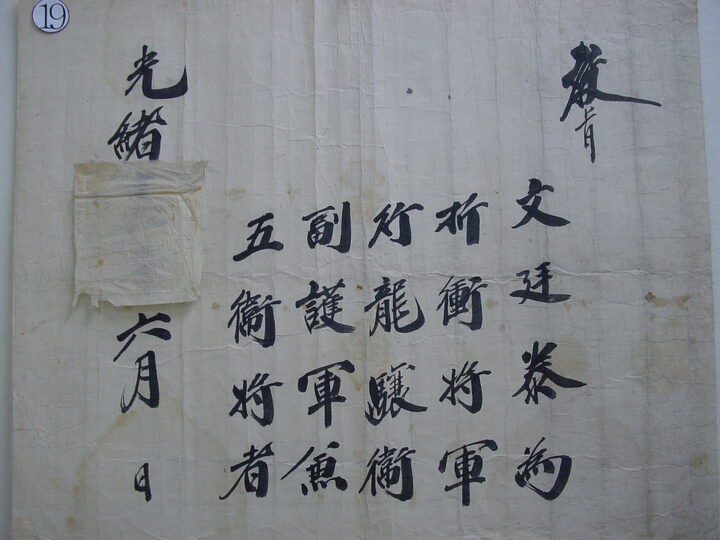 19
敎旨
文廷泰為
折衝将軍
行龍驤衛
副護軍兼
五衛将者
光緒 六月 日